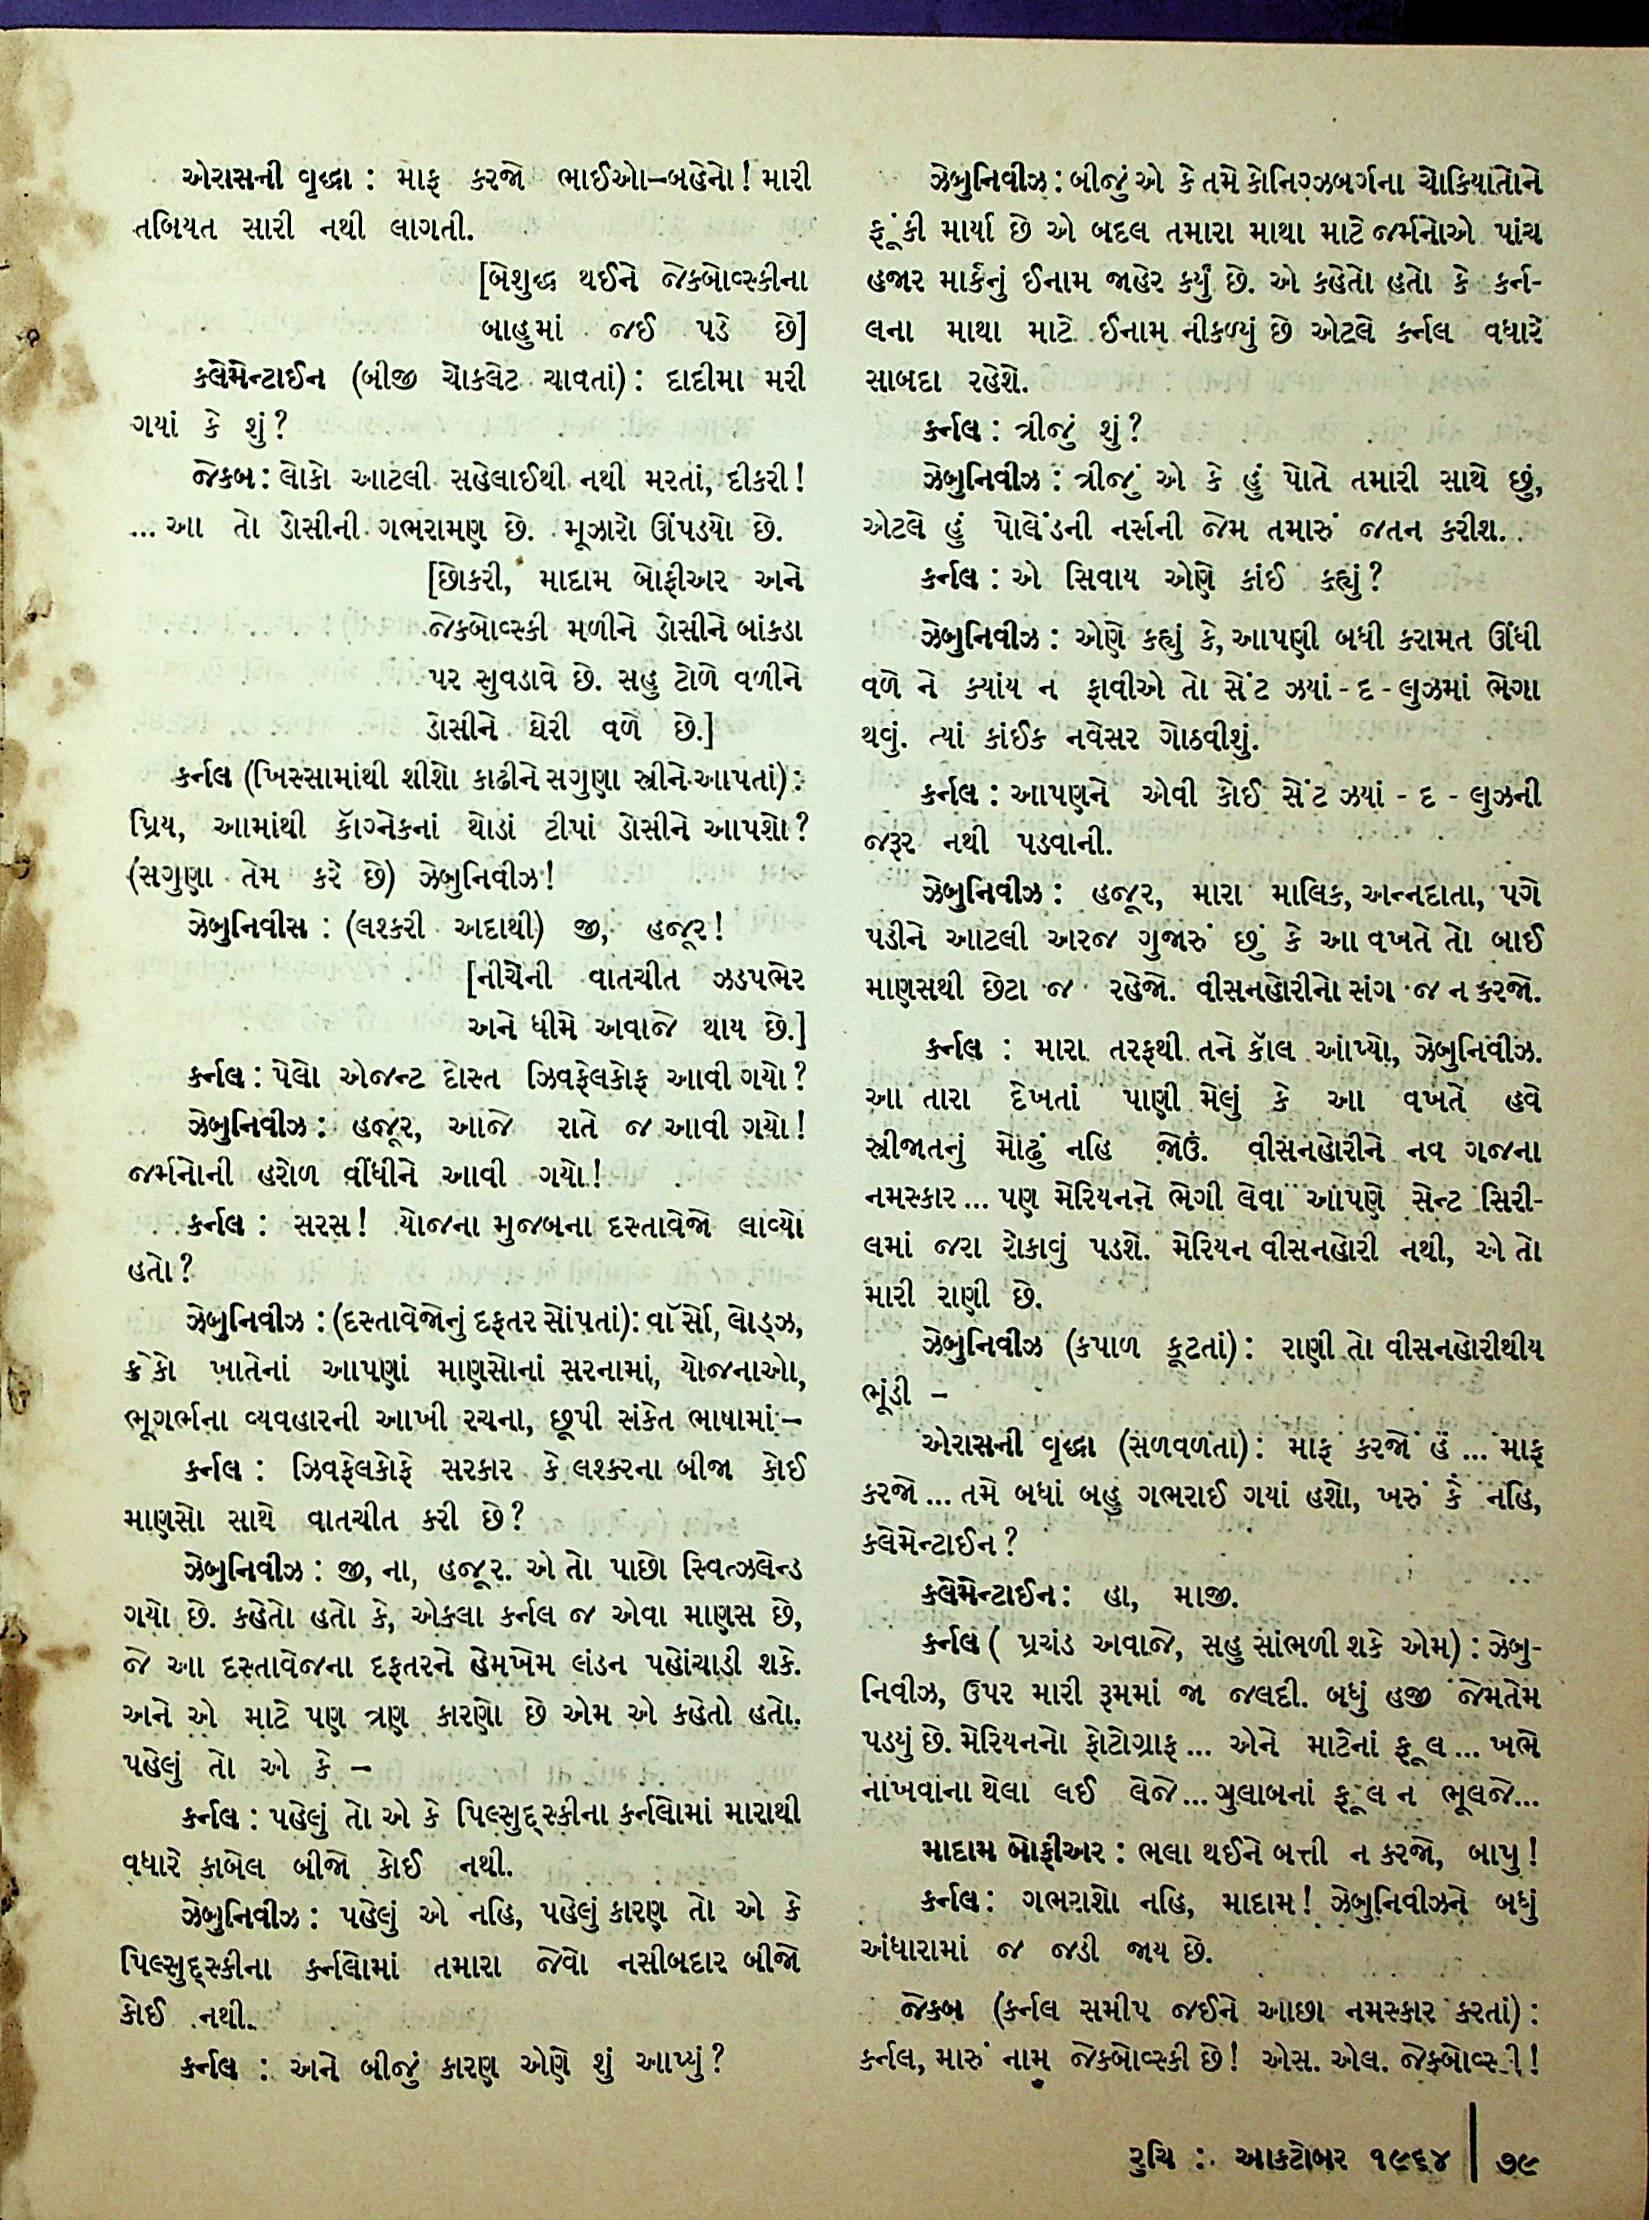 એરાસની વૃદ્ધા : માફ કરજો ભાઈઓ–બહેનો! મારી
તબિયત સારી નથી લાગતી.
[બેશુદ્ધ થઈને જેકબોવ્સ્કીના
બાહુમાં જઈ પડે છે]
ક્લેમેન્ટાઈન (બીજી ચોકલેટ ચાવતાં) : દાદીમા મરી
ગયાં કે શું?
જેકબ : લોકો આટલી સહેલાઈથી નથી મરતાં, દીકરી!
... આ તો ડોસીની ગભરામણ છે. મૂઝારો ઊપડયો છે.
[છોકરી, માદામ બોફીઅર અને
જેકબોવ્સ્કી મળીને ડોસીને બાંકડા
પર સુવડાવે છે. સહુ ટોળે વળીને
ડોસીને ઘેરી વળે છે.]
કર્નલ (ખિસ્સામાંથી શીશો કાઢીને સગુણા સ્ત્રીને આપતાં) :
પ્રિય, આમાંથી કૉગ્નેકનાં થોડાં ટીપાં ડોસીને આપશો?
(સગુણા તેમ કરે છે) ઝેબુનિવીઝ!
ઝેબુનિવીસ : (લશ્કરી અદાથી) જી, હજૂર!
[નીચેની વાતચીત ઝડપભેર
અને ધીમે અવાજે થાય છે.]
કર્નલ : પેલો એજન્ટ દોસ્ત ઝિવફેલકોફ આવી ગયો?
ઝેબુનિવીઝ : હજૂર, આજે રાતે જ આવી ગયો!
જર્મનોની હરોળ વીંધીને આવી ગયો!
કર્નલ : સરસ! યોજના મુજબના દસ્તાવેજો લાવ્યો
હતો?
ઝેબુનિવીઝ : (દસ્તાવેજોનું દફતર સોંપતાં) : વૉર્સો, લોડ્ઝ,
ક્રેકો ખાતેનાં આપણાં માણસોનાં સરનામાં, યોજનાઓ,
ભૂગર્ભના વ્યવહારની આખી રચના, છૂપી સંકેત ભાષામાં –
કર્નલ : ઝિવફેલકોફે સરકાર કે લશ્કરના બીજા કોઈ
માણસો સાથે વાતચીત કરી છે?
ઝેબુનિવીઝ : જી, ના, હજૂર. એ તો પાછો સ્વિત્ઝલેન્ડ
ગયો છે. કહેતો હતો કે, એકલા કર્નલ જ એવા માણસ છે,
જે આ દસ્તાવેજના દફતરને હેમખેમ લંડન પહોંચાડી શકે.
અને એ માટે પણ ત્રણ કારણો છે એમ એ કહેતો હતો.
પહેલું તો એ કે –
કર્નલ : પહેલું તો એ કે પિલ્સુદ્સ્કીના કર્નલોમાં મારાથી
વધારે કાબેલ બીજો કોઈ નથી.
ઝેબુનિવીઝ : પહેલું એ નહિ, પહેલું કારણ તો એ કે
પિલ્સુદ્સ્કીના કર્નલોમાં તમારા જેવો નસીબદાર બીજો
કોઈ નથી.
કર્નલ : અને બીજું કારણ એણે શું આપ્યું?
ઝેબુનિવીઝ : બીજું એ કે તમે કોનિગ્ઝબર્ગના ચોકિયાતોને
ફૂંકી માર્યા છે એ બદલ તમારા માથા માટે જર્મનોએ પાંચ
હજાર માર્કનું ઈનામ જાહેર કર્યું છે. એ કહેતો હતો કે કર્ન-
લના માથા માટે ઈનામ નીકળ્યું છે એટલે કર્નલ વધારે
સાબદા રહેશે.
કર્નલ : ત્રીજું શું?
ઝેબુનિવીઝ : ત્રીજું એ કે હું પોતે તમારી સાથે છું,
એટલે હું પોલેંડની નર્સની જેમ તમારું જતન કરીશ.
કર્નલ : એ સિવાય એણે કાંઈ કહ્યું?
ઝેબુનિવીઝ : એણે કહ્યું કે, આપણી બધી કરામત ઊંધી
વળે ને ક્યાંય ન ફાવીએ તો સેંટ ઝયાં - દ - લુઝમાં ભેગા
થવું. ત્યાં કાંઈક નવેસર ગોઠવીશું.
કર્નલ : આપણને એવી કોઈ સેંટ ઝયાં - દ - લુઝની
જરૂર નથી પડવાની.
ઝેબુનિવીઝ : હજૂર, મારા માલિક, અન્નદાતા, પગે
પડીને આટલી અરજ ગુજારું છું કે આ વખતે તો બાઈ
માણસથી છેટા જ રહેજો. વીસનહોરીનો સંગ જ ન કરજો.
કર્નલ : મારા તરફથી તને કૉલ આપ્યો, ઝેબુનિવીઝ.
આ તારા દેખતાં પાણી મેલું કે આ વખતે હવે
સ્ત્રીજાતનું મોઢું નહિ જોઉં. વીસનહોરીને નવ ગજના
નમસ્કાર... પણ મેરિયનને ભેગી લેવા આપણે સેન્ટ સિરી-
લમાં જરા રોકાવું પડશે. મેરિયન વીસનહોરી નથી, એ તો
મારી રાણી છે.
ઝેબુનિવીઝ (કપાળ કૂટતાં) : રાણી તો વીસનહોરીથીય
ભૂંડી –
એરાસની વૃદ્ધા (સળવળતા) : માફ કરજો હં ... માફ
કરજો ... તમે બધાં બહુ ગભરાઈ ગયાં હશો, ખરું કે નહિ,
ક્લેમેન્ટાઈન?
ક્લેમેન્ટાઈન : હા, માજી.
કર્નલ ( પ્રચંડ અવાજે, સહુ સાંભળી શકે એમ) : ઝેબુ-
નિવીઝ, ઉપર મારી રૂમમાં જા જલદી. બધું હજી જેમતેમ
પડયું છે. મેરિયનનો ફોટોગ્રાફ... એને માટેનાં ફૂલ... ખભે
નાખવાના થેલા લઈ લેજે... ગુલાબનાં ફૂલ ન ભૂલજે...
માદામ બોફીઅર : ભલા થઈને બત્તી ન કરજો, બાપુ!
કર્નલ : ગભરાશો નહિ, માદામ! ઝેબુનિવીઝને બધું
અંધારામાં જ જડી જાય છે.
જેકબ (કર્નલ સમીપ જઈને આછા નમસ્કાર કરતાં) :
કર્નલ, મારું નામ જેકબોવ્સ્કી છે! એસ. એલ. જેકબોવ્સ્કી!
રુચિ : ઓક્ટોબર ૧૯૬૪ | ૭૯